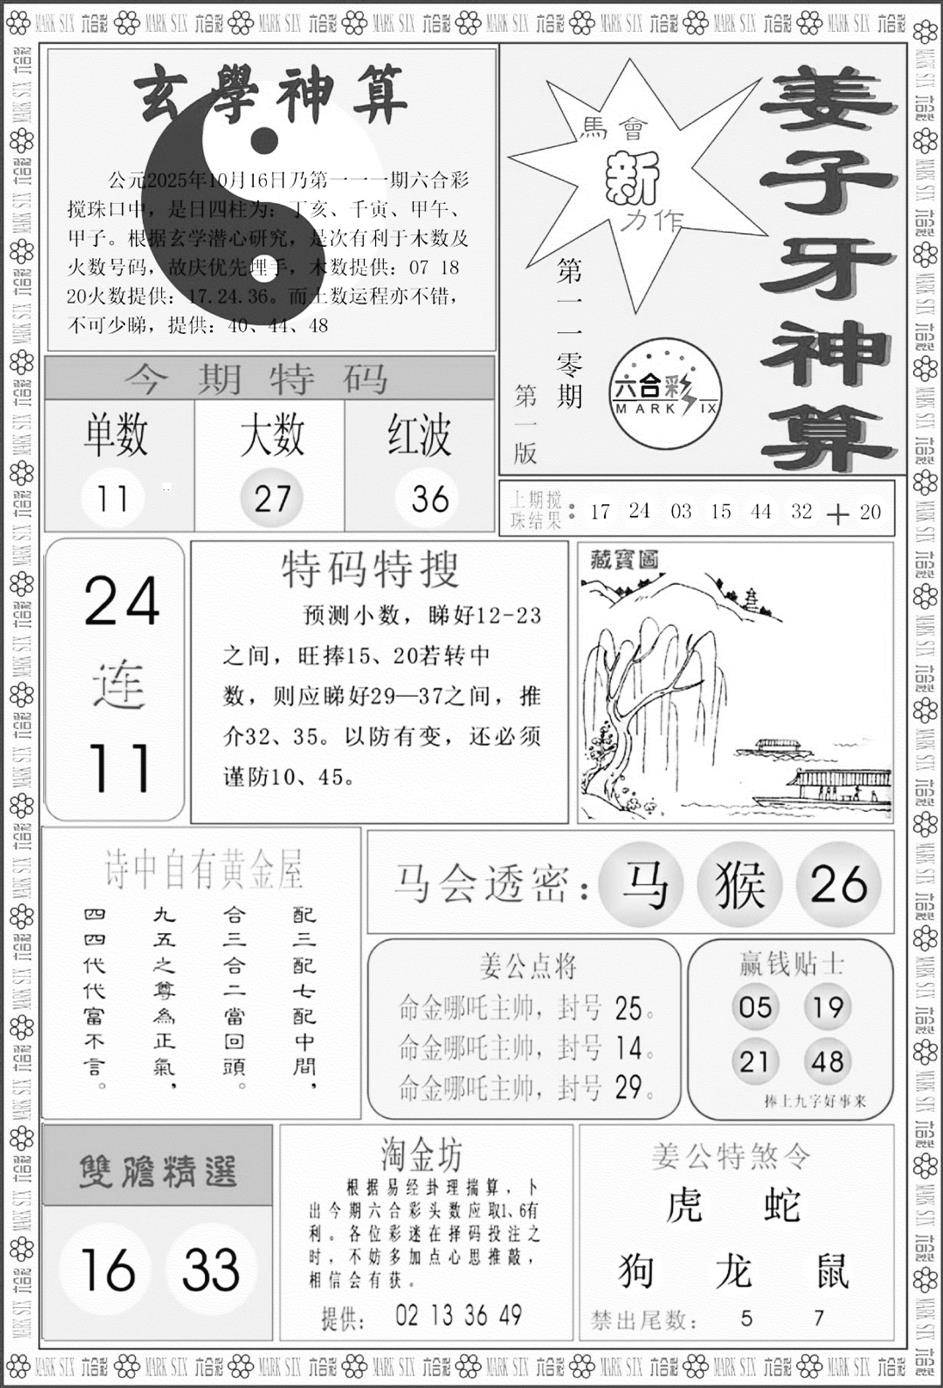 玄學神算
公元2025年10月16日乃第一一一期六合彩
搅珠口中，是日四柱为：丁亥、千寅、甲午、
甲子。根据玄学潜心研究，是次有利于木数及
火数号码，故庆优先埋手，木数提供：07 18
20火数提供：17.24.36。而土数运程亦不错，
不可少睇，提供：40、44、48
馬會
新
力作
姜子牙神算
第一一零期
第一版
六合彩
MARK SIX
今期特码
单数 大数 红波
11 27 36
上期搅
珠结果：17 24 03 15 44 32 + 20
24
连
11
特码特搜
预测小数，睇好12-23
之间，旺捧15、20若转中
数，则应睇好29—37之间，推
介32、35。以防有变，还必须
谨防10、45。
藏寶圖
诗中自有黄金屋
配三配七配中間，
合三合二當回頭。
九五之尊為正氣，
四四代代富不言。
马会透密：马 猴 26
姜公点将
命金哪吒主帅，封号 25。
命金哪吒主帅，封号 14。
命金哪吒主帅，封号 29。
赢钱贴士
05 19
21 48
捧上九字好事来
雙膽精選
16 33
淘金坊
根据易经卦理揣算，卜
出今期六合彩头数应取1、6有
利。各位彩迷在择码投注之
时，不妨多加点心思推敲，
相信会有获。
提供： 02 13 36 49
姜公特煞令
虎 蛇
狗 龙 鼠
禁出尾数： 5 7
MARK SIX 六合彩